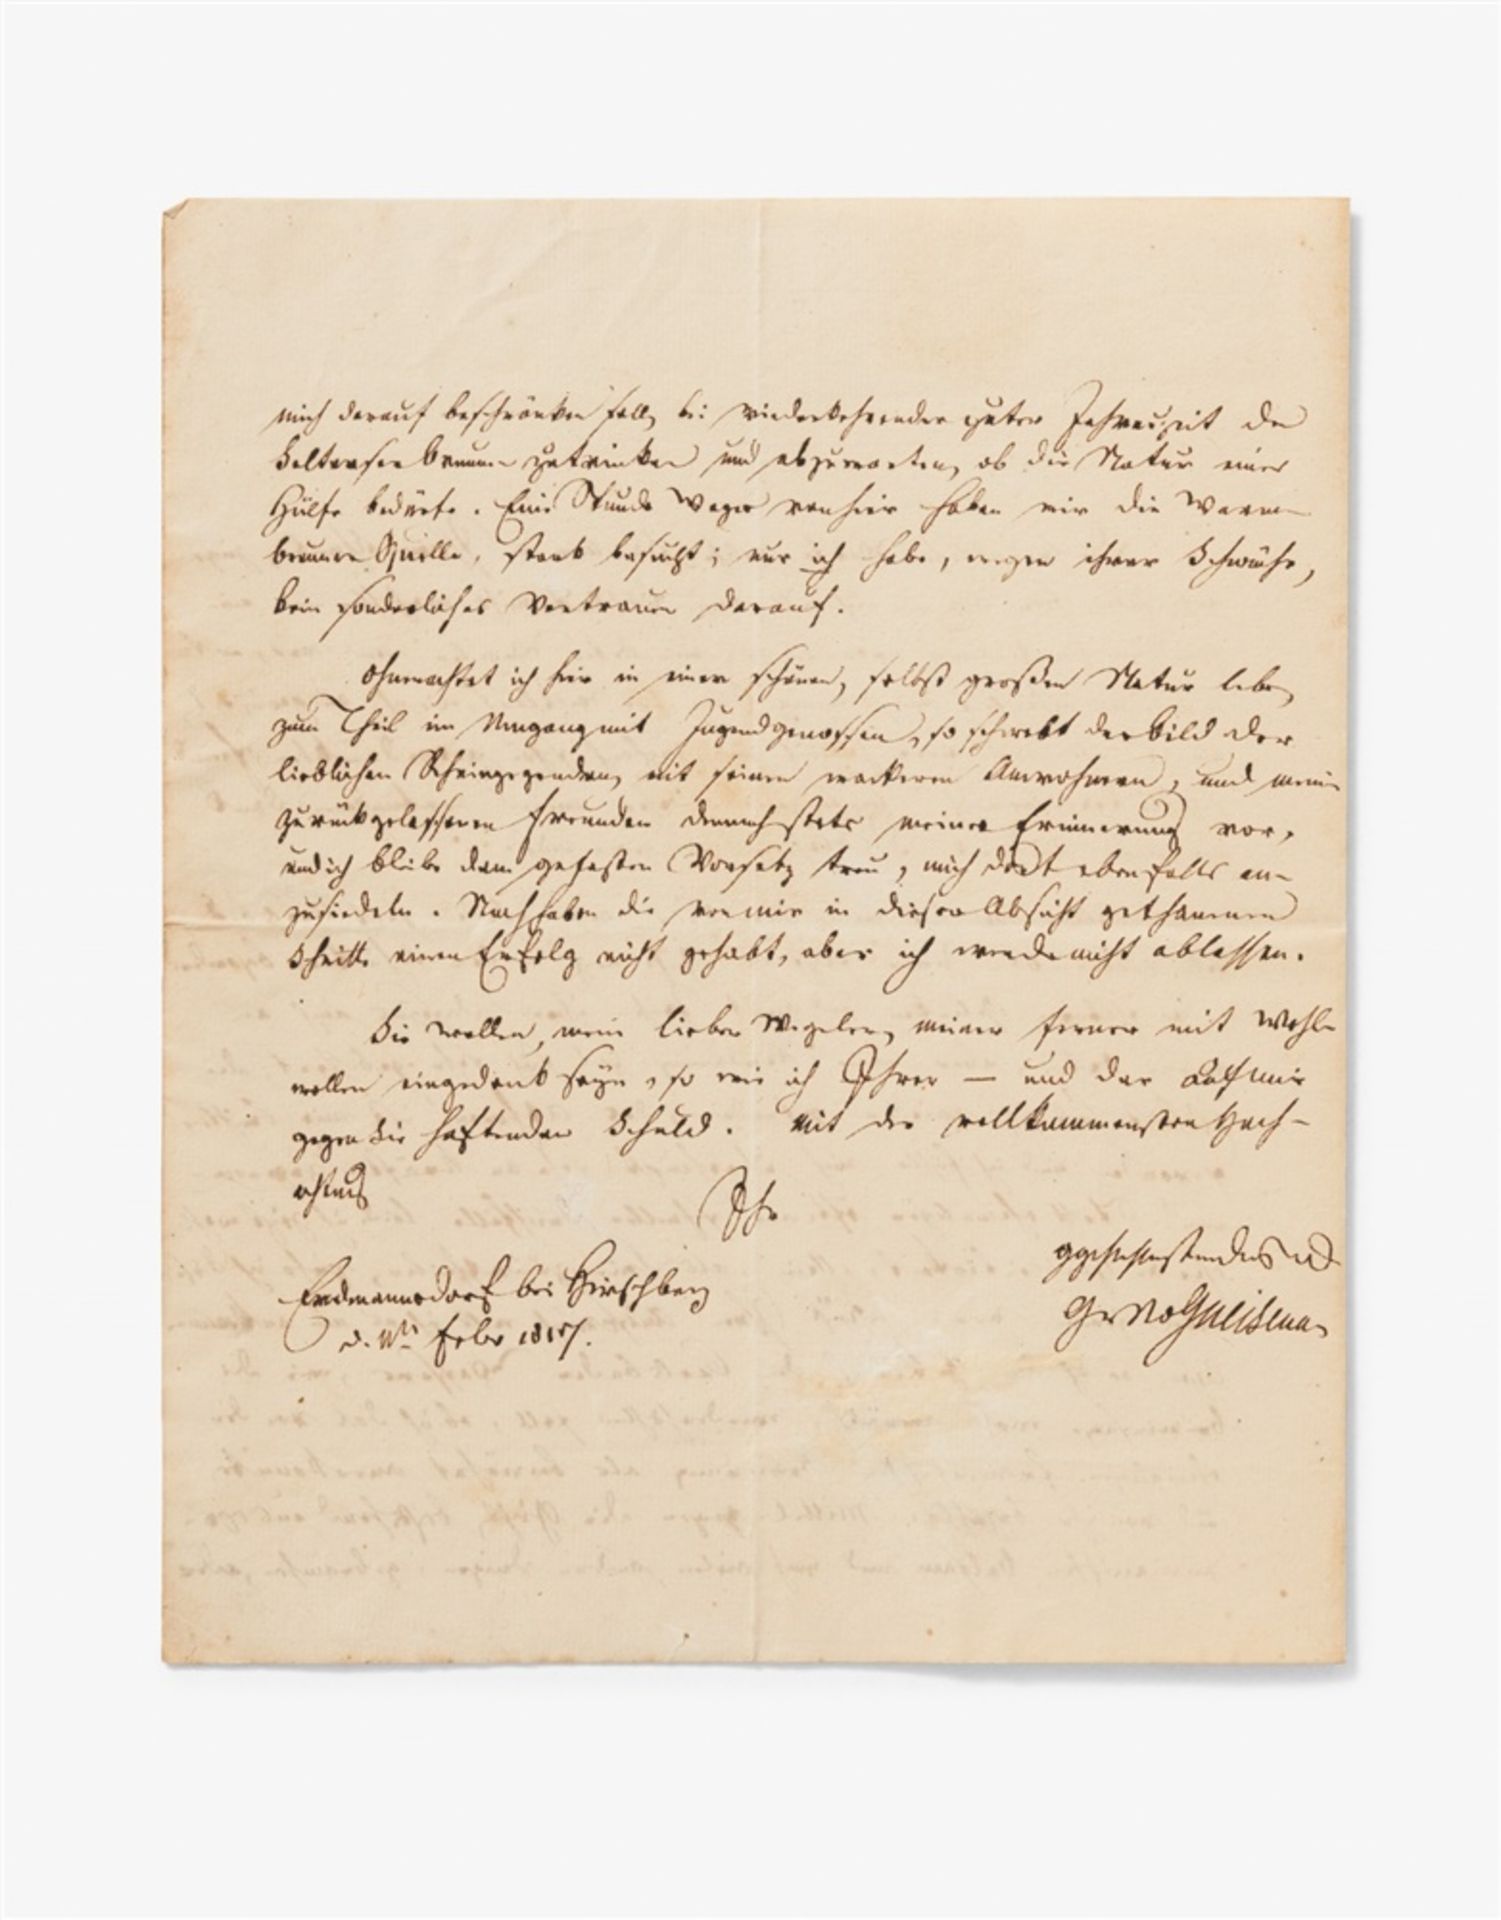 mich darauf beschränken soll, bei wiederkehrender guter Jahreszeit den
Selterser Brunnen zutrinken und abzuwarten, ob die Natur einer
Hülfe bedürfe. Eine Stunde Weges von hier haben wir die Warm-
brunner Quelle, stark besucht; nur ich habe, wegen ihrer Schwäche,
kein sonderliches Vertrauen darauf.
Ohnerachtet ich hier in einer schönen, selbst großen Natur lebe,
zum Theil im Umgang mit Jugendgenossen, so schwebt das Bild der
lieblichen Rheingegenden, mit seinen wackeren Anwohnern, und meine
zurückgelassenen Freunden dennoch stets meiner Erinnerung vor,
und ich bleibe dem gefaßten Vorsatz treu, mich dort ebenfalls an-
zusiedeln. Noch haben die von mir in dieser Absicht gethanenen
Schritte einen Erfolg nicht gehabt, aber ich werde nicht ablassen.
Sie wollen, mein lieber Wegeler, meiner ferner mit Wohl-
wollen eingedenk seyn, so wie ich Ihrer — und der auf mir
gegen Sie haftenden Schuld. Mit der vollkommensten Hoch-
achtung
Ihr
Erdmannsdorf bei Hirschberg
Gr N v Gneisenau
d. Febr 1817.